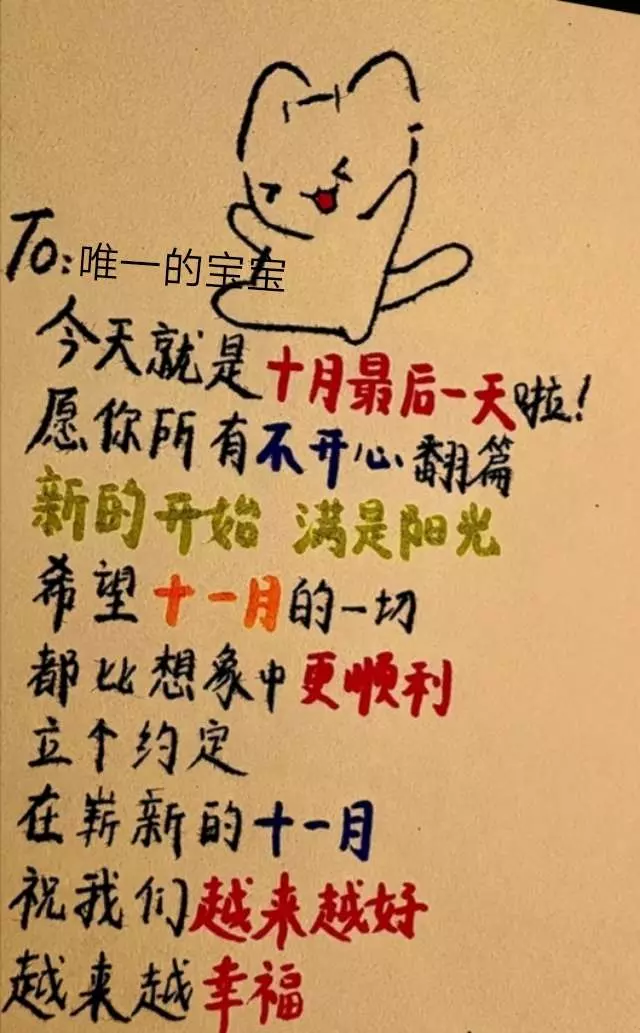 To:唯一的宝宝
今天就是十月最后一天啦!
愿你所有不开心翻篇
新的开始 满是阳光
希望十一月的一切
都比想象中更顺利
立个约定
在崭新的十一月
祝我们越来越好
越来越幸福